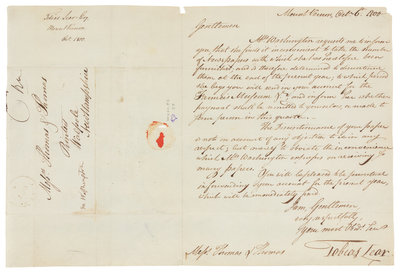 Tobias Lear Esq.
Mount Vernon
Oct. 1800.
Messrs. Thomas & Thomas
Printers
Walpole
New Hampshire
Mount Vernon Oct. 6. 1800
Gentlemen
Mrs. Washington requests me to inform
you that she finds it inconvenient to take the number
of Newspapers with which she has heretofore been
furnished, and is therefore determined to discontinue
them at the end of the present year, to which period
she begs you will send on your account for the
Farmers Museum &c. and inform me whether
payment shall be remitted to yourselves, or made to
some person in this quarter.
The discontinuance of your paper
is not on account of any objection to it in any
respect; but merely to obviate the inconvenience
which Mrs. Washington experiences in receiving so
many papers. You will be pleased to be punctual
in forwarding your account for the present year,
which will be immediately paid.
I am, Gentlemen
very respectfully,
Your most Obedt. Servt.
Tobias Lear.
Messrs. Thomas & Thomas